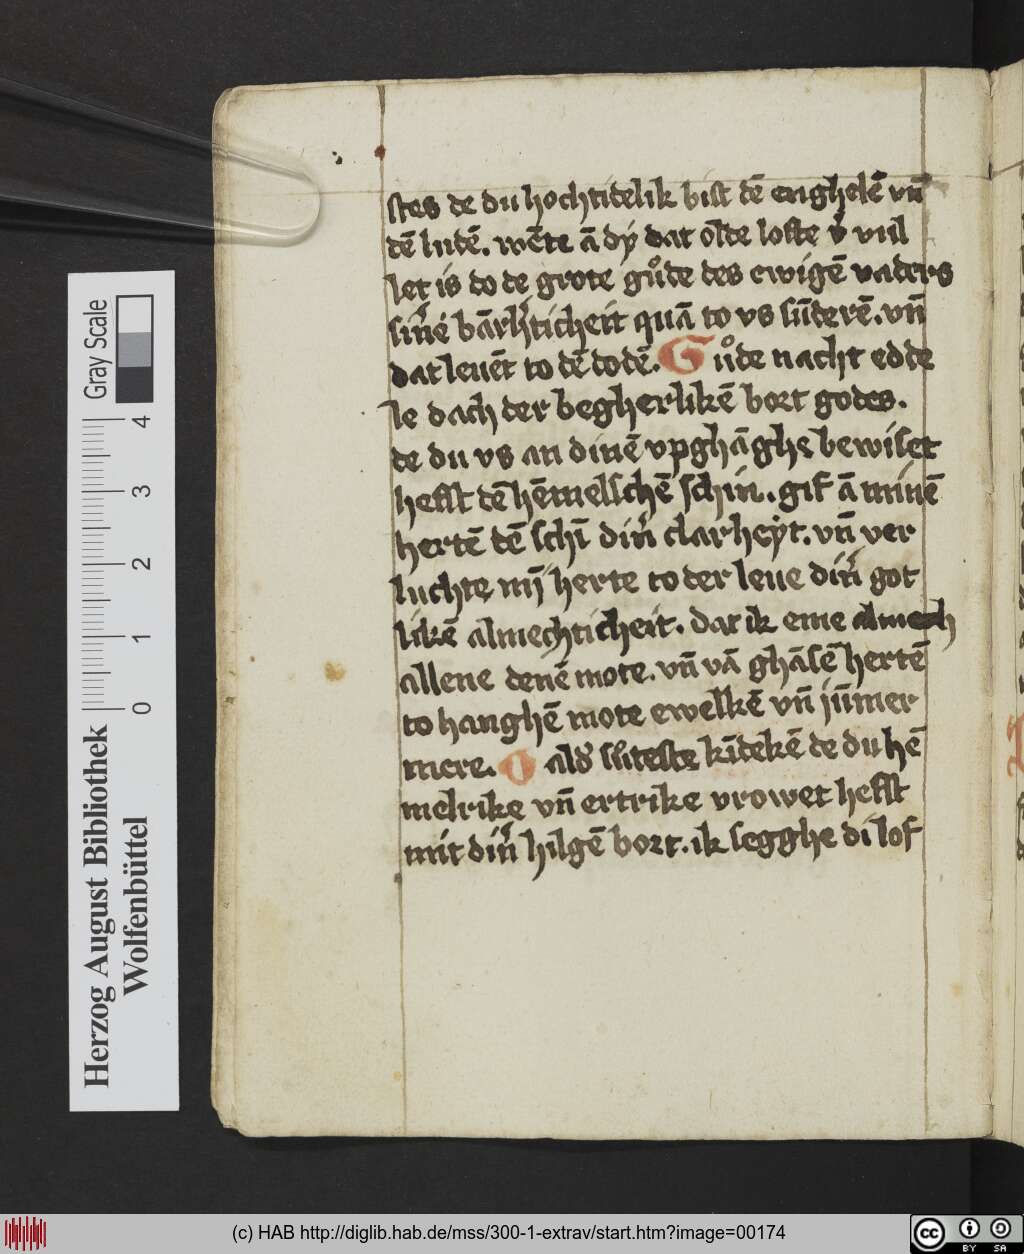 stes de du hochtidelik bist dē enghelē vn̄
dē ludē. wēte ā dy dat olde lofte v̄ vul
let is do de grote gůde des ewigē vaders
bārh̾ticheit quā to vs sūderē. vn̄
dat leuēt to dē dodē. Gůde nacht edde
le dach der begherlikē bort godes.
de du vs an dinē vpghāghe bewiset
hefst dē hēmelschē schin. gif ā minē
hertē dē schī din̾ clarheyt. vn̄ ver
luchte mȳ herte to der leue din̾ got
likē almechticheit. dar ik eme
allene denē mote. vn̄ vā ghāsē hertē
to hanghē mote ewelkē vn̄ jūmer
mere. O ald̾ suteste kīdekē de du hē
melrike vn̄ ertrike vrowet hefst
mit din̾ hilgē bort. ik segghe di lof
Herzog August Bibliothek
Wolfenbüttel
Gray Scale
0 1 2 3 4
(c) HAB http://diglib.hab.de/mss/300-1-extrav/start.htm?image=00174
cc BY SA